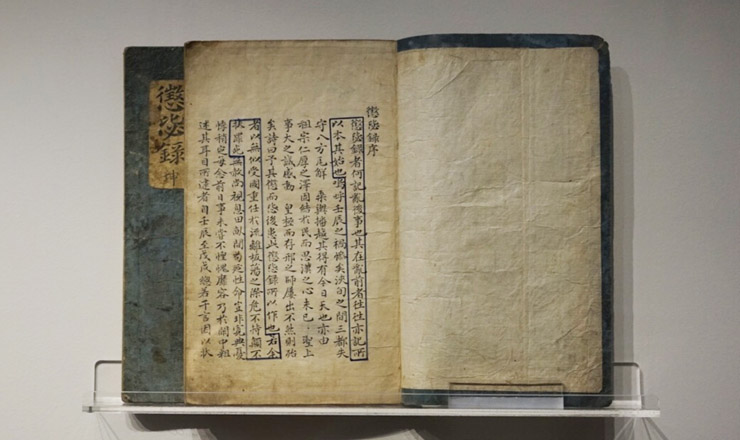 懲毖錄序
懲毖錄者何記亂後事也其在亂前者往往亦記所
以本其始也嗚呼壬辰之禍慘矣浹旬之間三都失
守八方瓦解 乘輿播越其得有今日天也亦由
祖宗仁厚之澤固結於民而思漢之心未已 聖上
事大之誠感動 皇極而存邢之師屢出不然則殆
矣詩曰予其懲而毖後患此懲毖錄所以作也若余
者以無似受國重任於流離板蕩之際危不持顚不
扶罪死無赦尙視息田畝間苟延性命豈非寬典憂
悸稍定每念前日事未嘗不惶愧靡容乃於閑中粗
述其耳目所逮者自壬辰至戊戌總若干言因以狀
懲毖錄